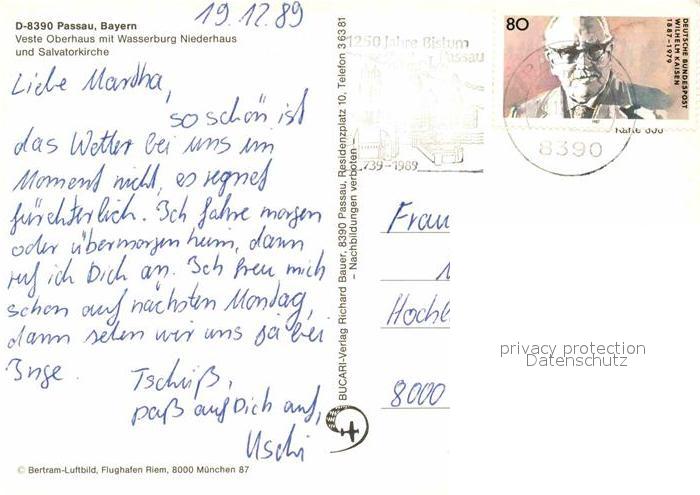 19.12.89
D-8390 Passau, Bayern
Veste Oberhaus mit Wasserburg Niederhaus
und Salvatorkirche
Liebe Martha,
so schön ist
das Wetter bei uns im
Moment nicht, es regnet
fürchterlich. Ich fahre morgen
oder übermorgen heim, dann
ruf ich Dich an. Ich freu mich
schon auf nächsten Montag,
dann sehen wir uns ja bei
Inge.
Tschüß,
paß auf Dich auf,
Uschi
© Bertram-Luftbild, Flughafen Riem, 8000 München 87
BUCARI-Verlag Richard Bauer, 8390 Passau, Residenzplatz 10, Telefon 3 63 81
– Nachbildungen verboten –
1250 Jahre Bistum
Passau
739-1989
80
DEUTSCHE BUNDESPOST
WILHELM KAISEN
1887-1979
8390
Frau
8000
privacy protection
Datenschutz